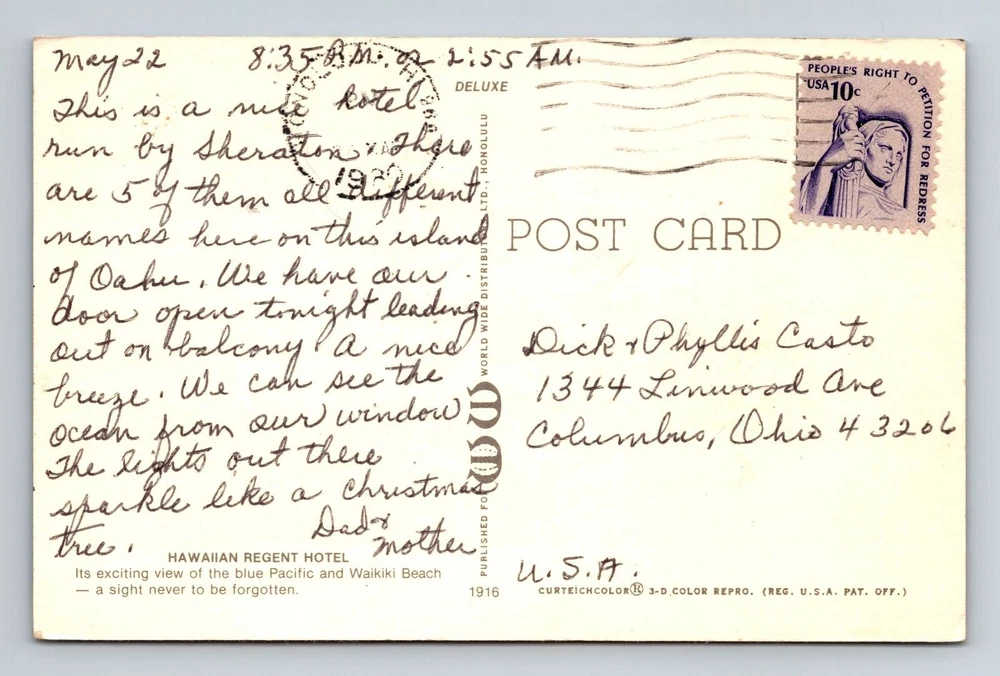 May 22 8:35 P.M. or 2:55 A.M.
This is a nice hotel
run by Sheraton. There
are 5 of them all different
names here on this island
of Oahu. We have our
door open tonight leading
out on balcony. A nice
breeze. We can see the
ocean from our window
The lights out there
sparkle like a Christmas
tree.
Dad &
Mother
HAWAIIAN REGENT HOTEL
Its exciting view of the blue Pacific and Waikiki Beach
— a sight never to be forgotten.
DELUXE
PUBLISHED FOR WORLD WIDE DISTRIBUTORS LTD., HONOLULU
1916
POST CARD
PEOPLE'S RIGHT TO PETITION FOR REDRESS
USA 10c
Dick & Phyllis Casto
1344 Linwood Ave
Columbus, Ohio 43206
U.S.A.
CURTEICHCOLOR® 3-D COLOR REPRO. (REG. U.S.A. PAT. OFF.)